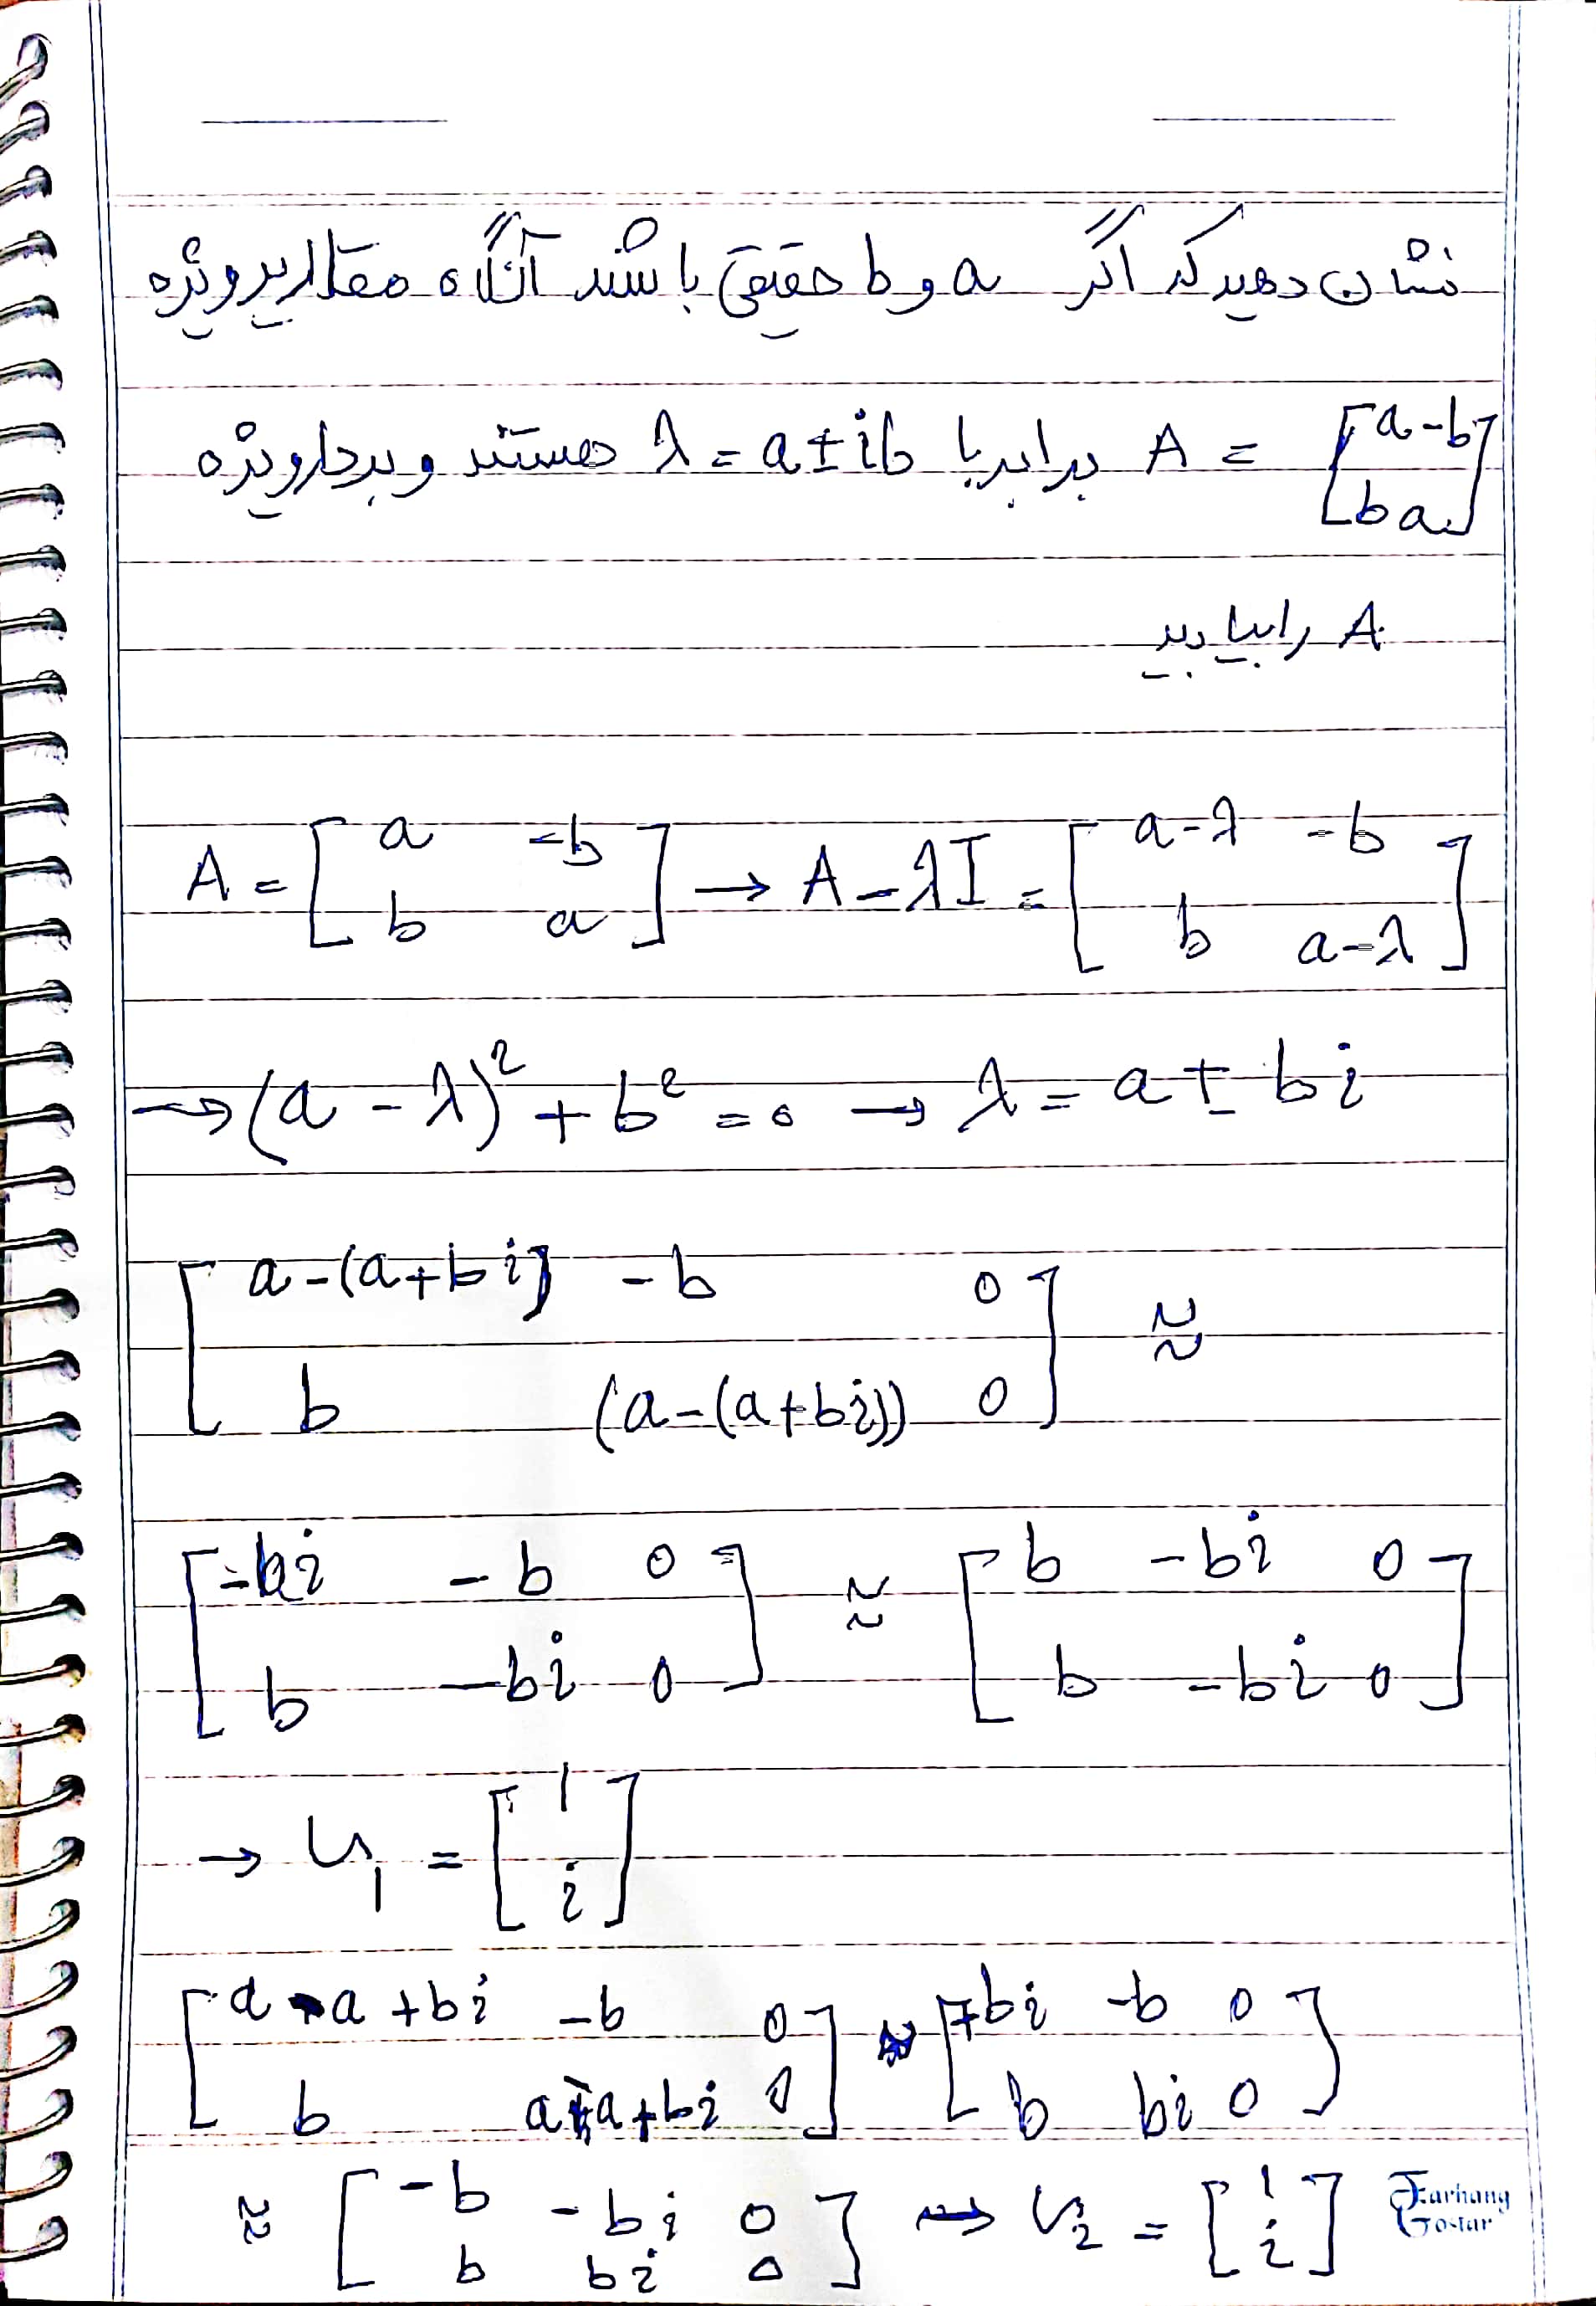 نشان دهید که اگر a و b حقیقی باشند آنگاه مقادیر ویژه
A = [a -b; b a] برابر با λ = a ± ib هستند و بردار ویژه
A را بیابید
A = [a -b; b a] → A - λI = [a-λ -b; b a-λ]
→ (a - λ)² + b² = 0 → λ = a ± bi
[a-(a+bi) -b 0; b (a-(a+bi)) 0] ≈
[-bi -b 0; b -bi 0] ≈ [b -bi 0; b -bi 0]
→ v₁ = [1; i]
[a-a+bi -b 0; b a-a+bi 0] ≈ [+bi -b 0; b bi 0]
≈ [-b -bi 0; b bi 0] → v₂ = [1; i]
Farhang
Gostar